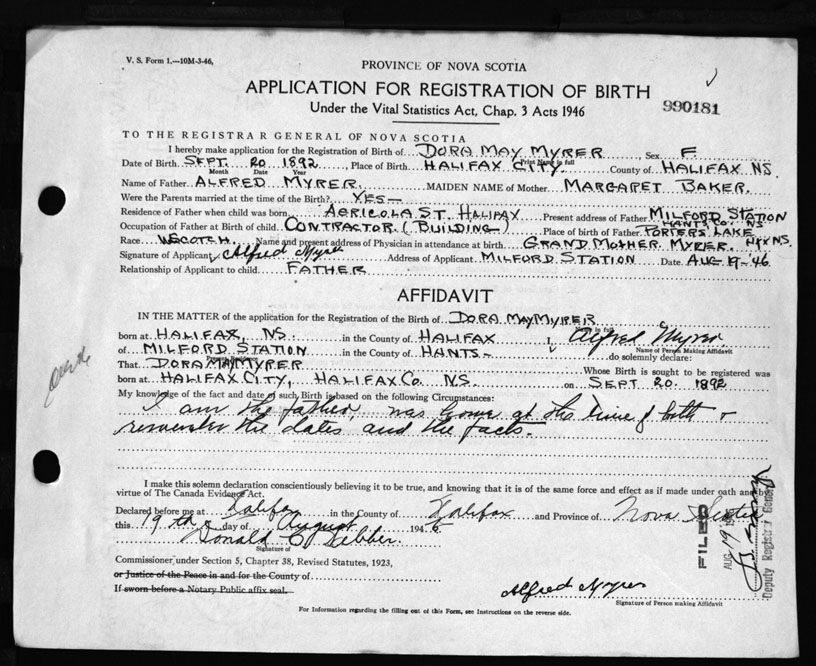 V. S. Form 1.—10M-3-46,
PROVINCE OF NOVA SCOTIA
APPLICATION FOR REGISTRATION OF BIRTH
Under the Vital Statistics Act, Chap. 3 Acts 1946
990181
TO THE REGISTRAR GENERAL OF NOVA SCOTIA
I hereby make application for the Registration of Birth of DORA MAY MYRER, Sex F.
Print Name in full
Date of Birth SEPT. 20 1892, Place of Birth HALIFAX CITY. County of HALIFAX NS.
Month Date Year
Name of Father ALFRED MYRER. MAIDEN NAME of Mother MARGARET BAKER.
Were the Parents married at the time of the Birth? YES—
Residence of Father when child was born AGRICOLA ST. HALIFAX Present address of Father MILFORD STATION
HANTS CO. NS
Occupation of Father at Birth of Child CONTRACTOR (BUILDING) Place of birth of Father PORTERS LAKE
HFX NS.
Race SCOTCH. Name and present address of Physician in attendance at birth GRAND MOTHER MYRER.
Signature of Applicant Alfred Myrer Address of Applicant MILFORD STATION Date AUG 19-'46
Relationship of Applicant to child FATHER
AFFIDAVIT
IN THE MATTER of the application for the Registration of the Birth of DORA MAY MYRER
Name in full
born at HALIFAX, NS. in the County of HALIFAX I, Alfred Myrer.
Name of Person Making Affidavit
of MILFORD STATION in the County of HANTS— do solemnly declare:
That DORA MAY MYRER Whose Birth is sought to be registered was
born at HALIFAX CITY, HALIFAX CO. NS. on SEPT 20. 1892
My knowledge of the fact and date of such Birth is based on the following Circumstances:
I am the father was home at the time of birth &
remember the dates and the facts.
I make this solemn declaration conscientiously believing it to be true, and knowing that it is of the same force and effect as if made under oath and by
virtue of The Canada Evidence Act.
Declared before me at Halifax in the County of Halifax and Province of Nova Scotia
this 19th day of August 1946
Donald C. Webber.
Signature of
Commissioner under Section 5, Chapter 38, Revised Statutes, 1923,
or Justice of the Peace in and for the County of
If sworn before a Notary Public affix seal.
Alfred Myrer
Signature of Person making Affidavit
For Information regarding the filling out of this Form, see Instructions on the reverse side.
FILED
AUG 19 1946
Deputy Registrar General